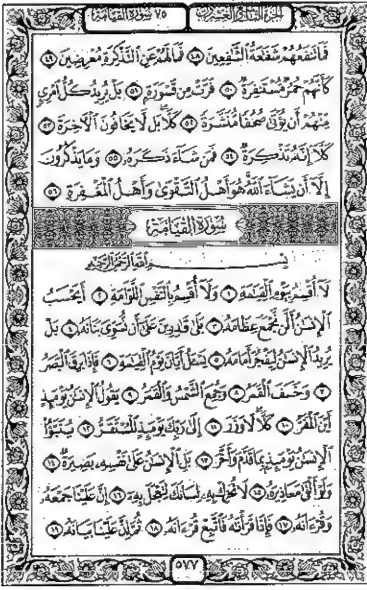 الجزء التاسع والعشرون ٧٥ سورة القيامة
فَمَا تَنفَعُهُمْ شَفَٰعَةُ ٱلشَّٰفِعِينَ ٤٨ فَمَا لَهُمْ عَنِ ٱلتَّذْكِرَةِ مُعْرِضِينَ ٤٩
كَأَنَّهُمْ حُمُرٌ مُّسْتَنفِرَةٌ ٥٠ فَرَّتْ مِن قَسْوَرَةٍۭ ٥١ بَلْ يُرِيدُ كُلُّ ٱمْرِئٍ
مِّنْهُمْ أَن يُؤْتَىٰ صُحُفًا مُّنَشَّرَةً ٥٢ كَلَّا بَل لَّا يَخَافُونَ ٱلْءَاخِرَةَ ٥٣
كَلَّآ إِنَّهُۥ تَذْكِرَةٌ ٥٤ فَمَن شَآءَ ذَكَرَهُۥ ٥٥ وَمَا يَذْكُرُونَ
إِلَّآ أَن يَشَآءَ ٱللَّهُ هُوَ أَهْلُ ٱلتَّقْوَىٰ وَأَهْلُ ٱلْمَغْفِرَةِ ٥٦
سُورَةُ القِيَامَةِ
بِسْمِ ٱللَّهِ ٱلرَّحْمَٰنِ ٱلرَّحِيمِ
لَآ أُقْسِمُ بِيَوْمِ ٱلْقِيَٰمَةِ ١ وَلَآ أُقْسِمُ بِٱلنَّفْسِ ٱللَّوَّامَةِ ٢ أَيَحْسَبُ
ٱلْإِنسَٰنُ أَلَّن نَّجْمَعَ عِظَامَهُۥ ٣ بَلَىٰ قَٰدِرِينَ عَلَىٰٓ أَن نُّسَوِّىَ بَنَانَهُۥ ٤ بَلْ
يُرِيدُ ٱلْإِنسَٰنُ لِيَفْجُرَ أَمَامَهُۥ ٥ يَسْـَٔلُ أَيَّانَ يَوْمُ ٱلْقِيَٰمَةِ ٦ فَإِذَا بَرِقَ ٱلْبَصَرُ
٧ وَخَسَفَ ٱلْقَمَرُ ٨ وَجُمِعَ ٱلشَّمْسُ وَٱلْقَمَرُ ٩ يَقُولُ ٱلْإِنسَٰنُ يَوْمَئِذٍ
أَيْنَ ٱلْمَفَرُّ ١٠ كَلَّا لَا وَزَرَ ١١ إِلَىٰ رَبِّكَ يَوْمَئِذٍ ٱلْمُسْتَقَرُّ ١٢ يُنَبَّؤُا۟
ٱلْإِنسَٰنُ يَوْمَئِذٍۭ بِمَا قَدَّمَ وَأَخَّرَ ١٣ بَلِ ٱلْإِنسَٰنُ عَلَىٰ نَفْسِهِۦ بَصِيرَةٌ ١٤
وَلَوْ أَلْقَىٰ مَعَاذِيرَهُۥ ١٥ لَا تُحَرِّكْ بِهِۦ لِسَانَكَ لِتَعْجَلَ بِهِۦٓ ١٦ إِنَّ عَلَيْنَا جَمْعَهُۥ
وَقُرْءَانَهُۥ ١٧ فَإِذَا قَرَأْنَٰهُ فَٱتَّبِعْ قُرْءَانَهُۥ ١٨ ثُمَّ إِنَّ عَلَيْنَا بَيَانَهُۥ ١٩
٥٧٧